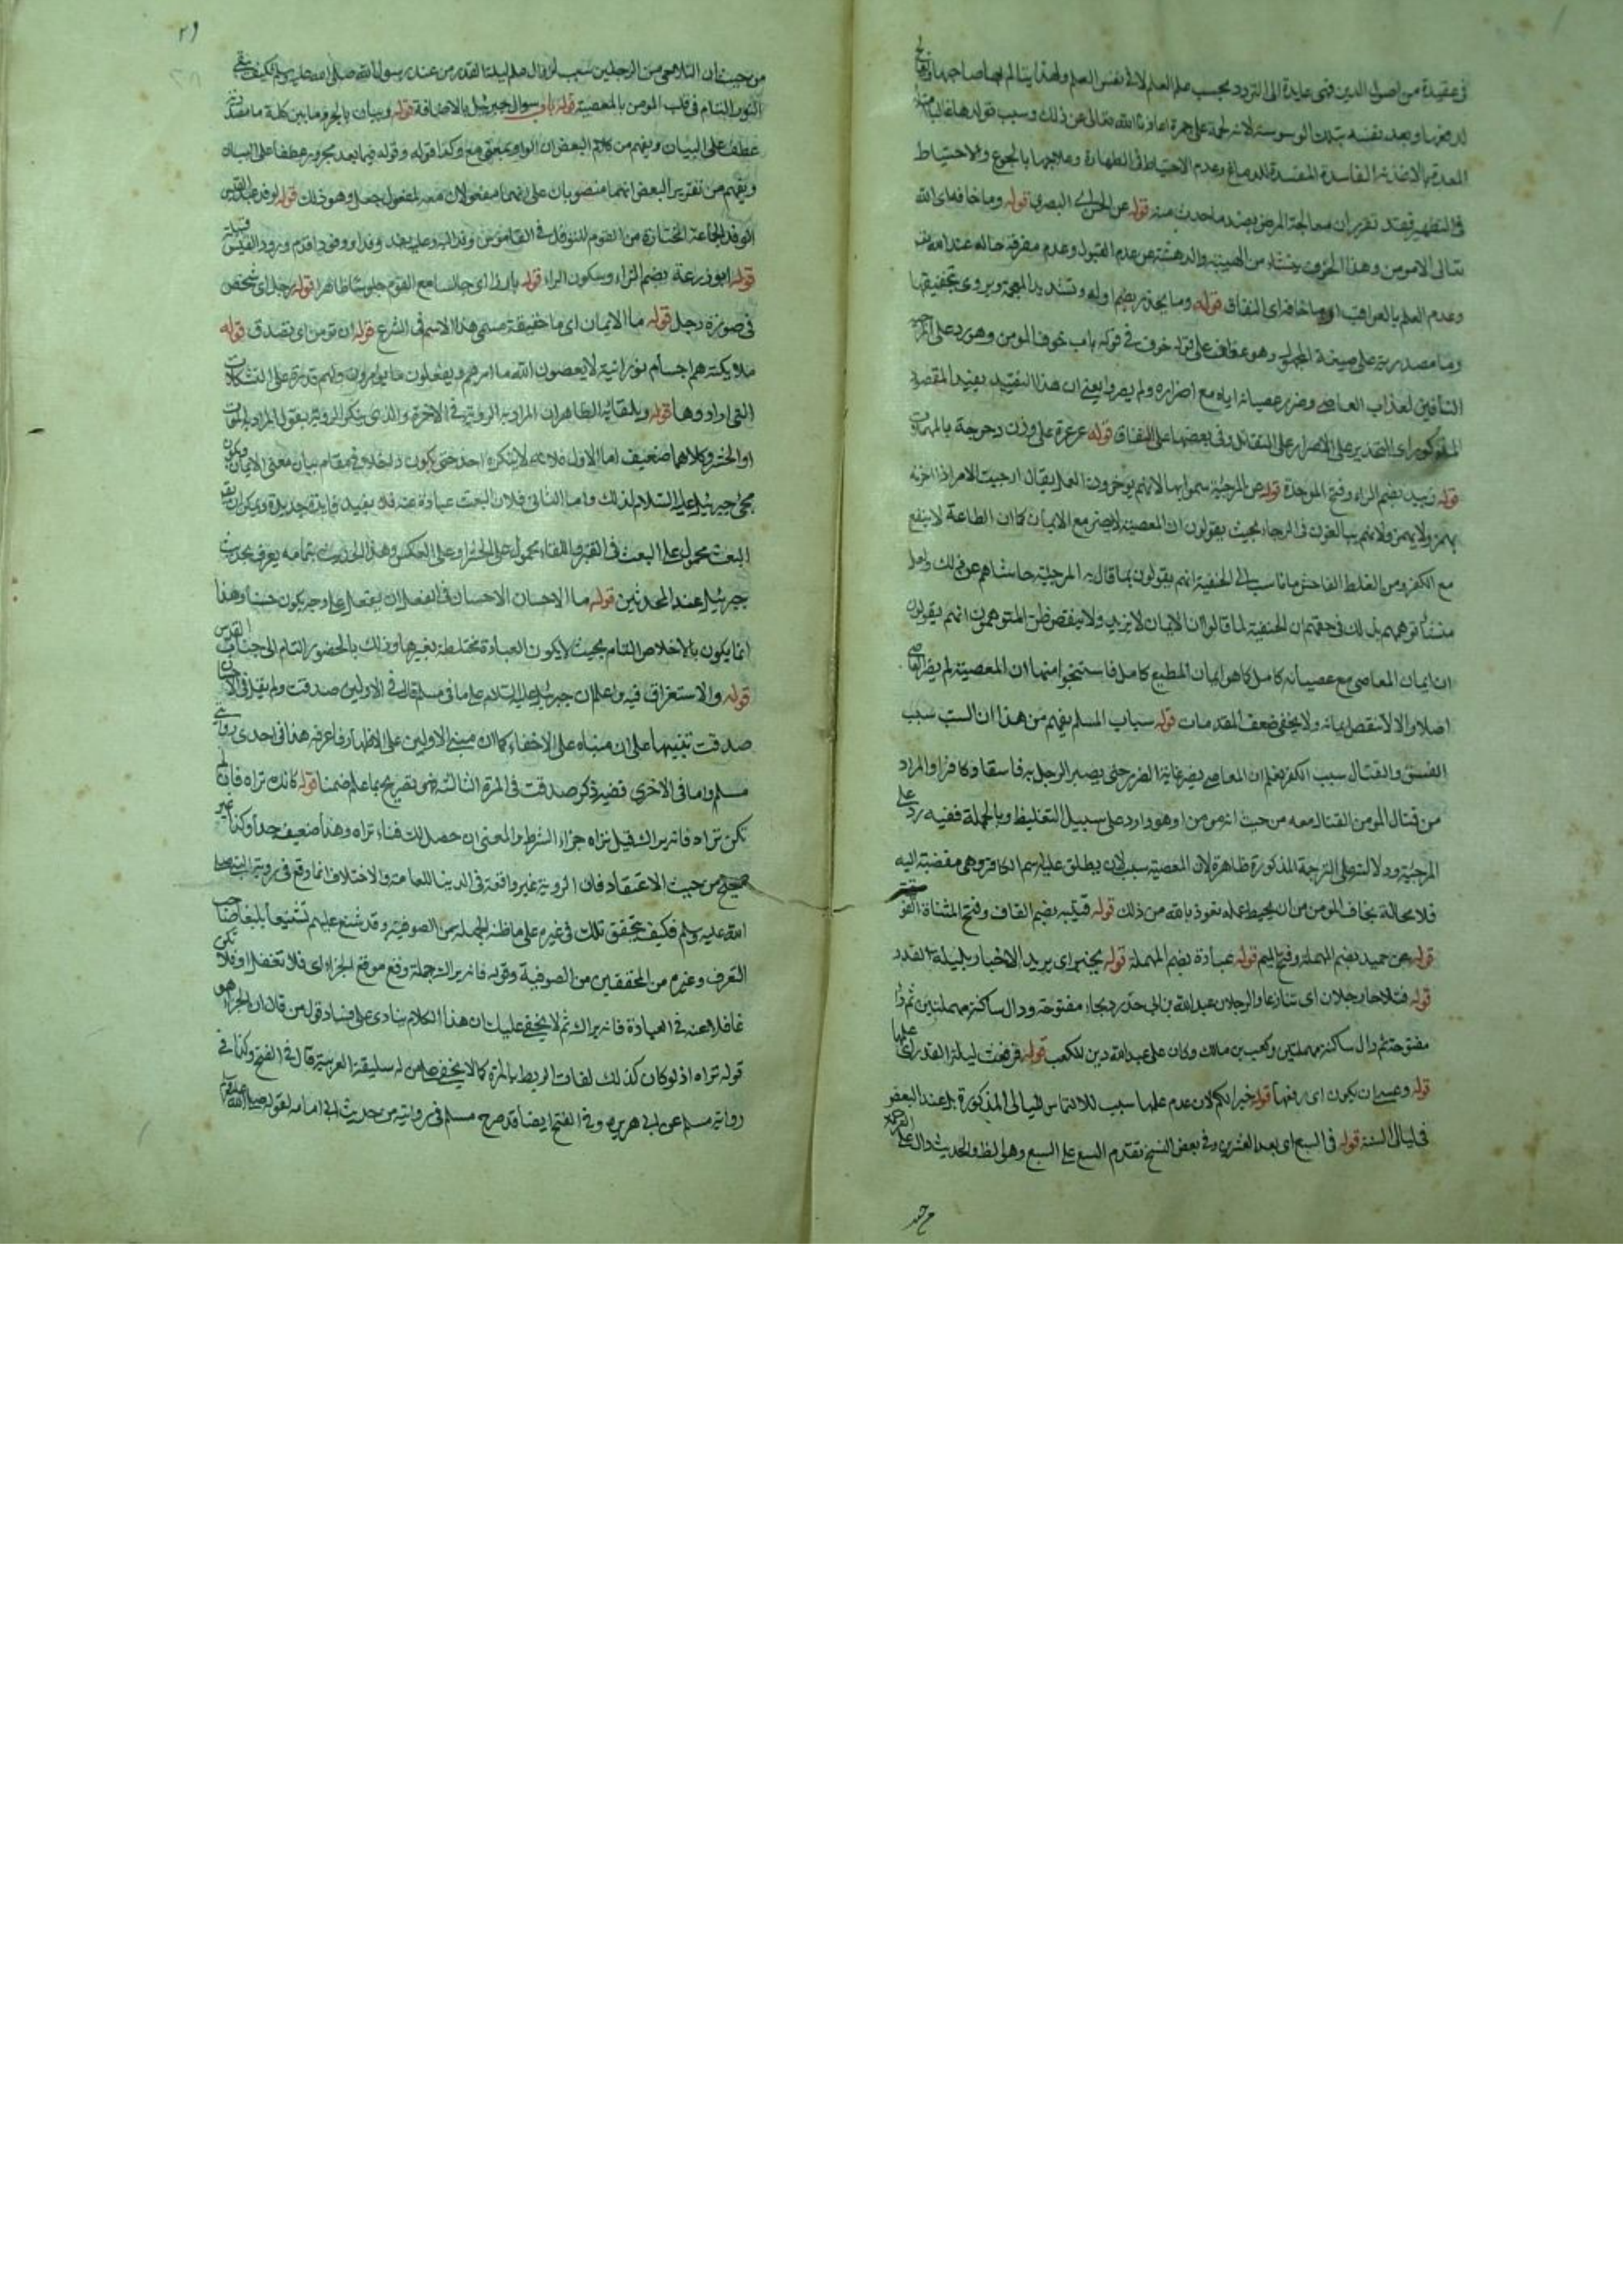 في عقيدة من اصول الدين فهى عايدة الى التردد بحسب علم العلم لا في نفس العلم ولهذا يتالم بها صاحبها
بتلك الوسوسة لانه لحمة على جمرة اعاذنا الله تعالى عن ذلك وسبب تولدها غالبا
المعدة بالاغذية الفاسدة المفسدة للدماغ وعدم الاحتياط في الطهارة وعلاجها بالجوع والاحتياط
في التطهير فقد تقرر ان معالجة المرض بضد ما حدث منه قوله عن الحسن اى البصرى قوله وما خافه اى الله
تعالى الا مومن وهذا الخوف من الهيبة والدهشة عن عدم القبول وعدم معرفة حاله عند
وعدم العلم بالعواقب او ما خافه اى النفاق قوله وما يحذر بضم اوله وتشديد المعجمة ويروى بتخفيفها
وما مصدرية على صيغة المجهول وهو عطف على قوله خوف في قوله باب خوف المومن وهو رد على
النافين لعذاب العاصى وضرر عصيانه اياه مع اصراره ولم يصروا يعنى ان هذا التقييد يفيد المقصود
المذكور اى التحذير على الاصرار على التقاتل وفي بعضها على النفاق قوله عرعرة على وزن دحرجة بالمهملات
قوله زبيد بضم الزاء وفتح الموحدة قوله عن المرجئة سموا بها لانهم يوخرون العمل يقال ارجيت الامر اذا اخرته
يهمز ولا يهمز ولانهم يبالغون في الرجاء بحيث يقولون ان المعصية لا يضر مع الايمان كما ان الطاعة لا ينفع
مع الكفر ومن الغلط الفاحش ما ناسب الى الحنفية انهم يقولون بما قال به المرجئة حاشاهم عن ذلك ولعل
منشأ توهمهم بذلك في حقهم ان الحنفية لما قالوا ان الايمان لا يزيد ولا ينقص ظن المتوهمون انهم يقولون
ان ايمان العاصى مع عصيانه كامل كما هو ايمان المطيع كامل فاستنتجوا منها ان المعصية لم يضر
اصلا والا لانتقص ايمانه ولا يخفى ضعف المقدمات قوله سباب المسلم يفهم من هذا ان السب سبب
الفسق والقتال سبب الكفر فعلم ان المعاصى يضر غاية الضرر حتى يصير الرجل به فاسقا وكافرا والمراد
من قتال المومن القتال معه من حيث انه مومن او هو وارد على سبيل التغليظ وبالجملة ففيه رد على
المرجئة ودلالته على الترجمة المذكورة ظاهرة لان المعصية سبب لان يطلق عليه اسم الكافر وهى مفضية اليه
فلا محالة يخاف المومن من ان يحيط عمله نعوذ بالله من ذلك قوله قتيبه بضم القاف وفتح المثناة الفو
قوله عن حميد بضم المهملة وفتح الميم قوله عبادة بضم المهملة قوله يخبر اى يريد الاخبار بليلة القدر
قوله فتلاحا رجلان اى تنازعا والرجلان عبد الله بن ابى حدرد بحاء مفتوحة ودال ساكنة مهملتين ثم را
مفتوحة ثم دال ساكنة مهملتين وكعب بن مالك وكان على عبد الله دين لكعب قوله فرفعت ليلة القدر اى علمها
قوله وعسى ان يكون اى رفعها قوله خيرا لكم لان عدم علمها سبب للالتماس الليالى المذكورة بل عند البعض
في ليالى السنة قوله في السبع اى بعد العشرين وفي بعض النسخ تقدم التسع على السبع وهو والحديث دال على
من حيث
من حيث ان التلاحى من الرجلين سبب لزوال علم ليلة القدر من عند رسول الله صلى الله عليه وسلم فكيف يبقى
النور التام في قلب المومن بالمعصية قوله باب سوال جبرئيل بالاضافة قوله وبيان بالجر وما بين كلة ما
عطف على البيان ويفهم من كلام البعض ان الواو بمعنى مع وكذا قوله وقوله فيما بعد مجرور عطفا على البيان
ويفهم من تقرير البعض انهما منصوبان على انهما مفعولان معه لمفعول جعل وهو ذلك قوله لوفد عبد القيس
الوفد الجماعة المختارة من القوم وفي القاموس وفد اليه وعليه يفد وفدا ووفودا قدم وورد القيس
قوله ابو زرعة بضم الزاء وسكون الراء قوله بارزا اى جالسا مع القوم جلوسا ظاهرا قوله رجل اى شخص
في صورة رجل قوله ما الايمان اى ما حقيقة مسمى هذا الاسم في الشرع قوله ان تومن اى تصدق قوله
ملايكته هم اجسام نورانية لا يعصون الله ما امرهم ويفعلون ما يومرون ولهم قدرة على التشكلات
التى ارادوها قوله وبلقائه الظاهر ان المراد به الروية في الاخرة والذى ينكر الروية يقول المراد به الموت
او الحشر وكلاهما ضعيف اما الاول فلانه لا ينكره احد حتى يكون داخلا في مقام بيان معنى الايمان
مجئ جبرئيل عليه السلام لذلك واما الثانى فلان البعث عبارة عنه فلا يفيد فايدة جديدة ويمكن ان
البعث محمول على البعث في القبر واللقاء محمول على الحشر او على العكس وهذا الحديث بتمامه يعرف بحديث
جبرئيل عند المحدثين قوله ما الاحسان الاحسان في الفعل ان يفعل على وجه يكون حسنا وهذا
انما يكون بالاخلاص التام بحيث لا يكون العبادة مختلطة بغيرها وذلك بالحضور التام الى جناب القدس
قوله والاستغراق فيه واعلم ان جبرئيل عليه السلام على ما في مسلم قال في الاولين صدقت ولم يقل في الاحسان
صدقت تنبيها على ان مبناه على الاخفاء كما ان مبنى الاولين على الاظهار فاعرفه هذا في احدى روايتى
مسلم واما في الاخرى فضيه ذكر صدقت في المرة الثالثة فهى تصريح بما علم ضمنا قوله كانك تراه فان لم
تكن تراه فانه يراك قيل تراه جزاء الشرط والمعنى ان حصل لك فناء تراه وهذا ضعيف جدا وكذا غير
صحيح من حيث الاعتقاد فان الروية غير واقعة في الدنيا للعامة والاختلاف انما وقع في روية النبى صلى
الله عليه وسلم فكيف يتحقق تلك في غيره على ما ظنه الجهلة من الصوفية وقد شنع عليهم تشنيعا بليغا صاحب
التعرف وغيره من المحققين من الصوفية وقوله فانه يراك جملة وقع موقع الجزاء اى فلا تغفل او فلا تكن
غافلا عنه في العبادة فانه يراك ثم لا يخفى عليك ان هذا الكلام ينادى على فساد قول من قال ان الجزاء هو
قوله تراه اذ لو كان كذلك لفات الربط بالمرة كما لا يخفى على من له سليقة العربية قال في الفتح وكذا في
رواية مسلم عن ابى هريرة وفي الفتح ايضا قد صرح مسلم في روايته من حديث ابى امامه لقوله صلى الله عليه وسلم